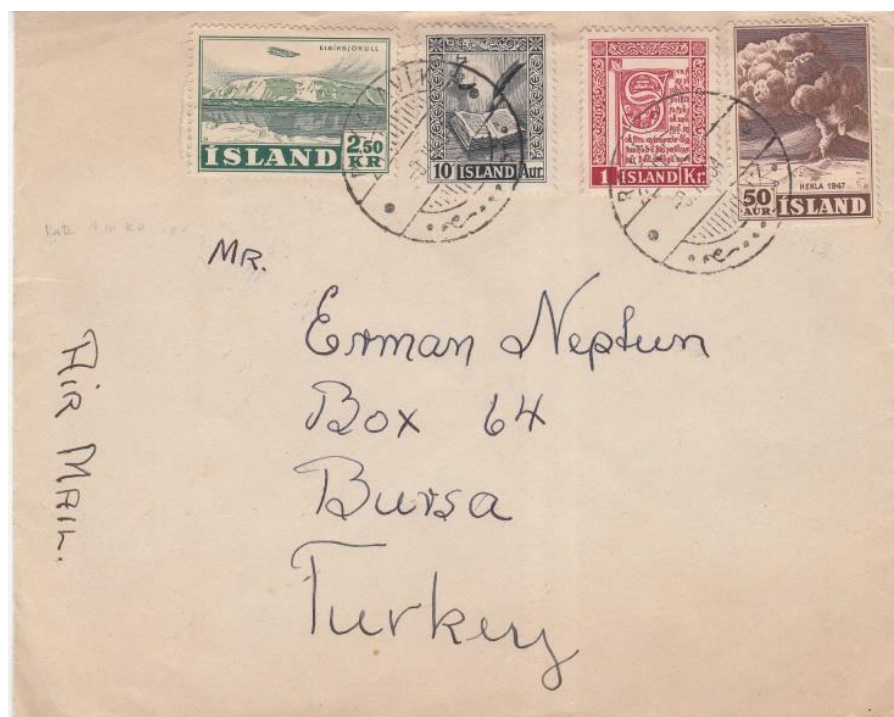 EIRÍKSJÖKULL
ÍSLAND 2.50 KR
10 ÍSLAND Aur.
1 ÍSLAND Kr.
HEKLA 1947
50 AUR. ÍSLAND
MR.
Erman Neptun
Box 64
Bursa
Turkey
AIR MAIL.